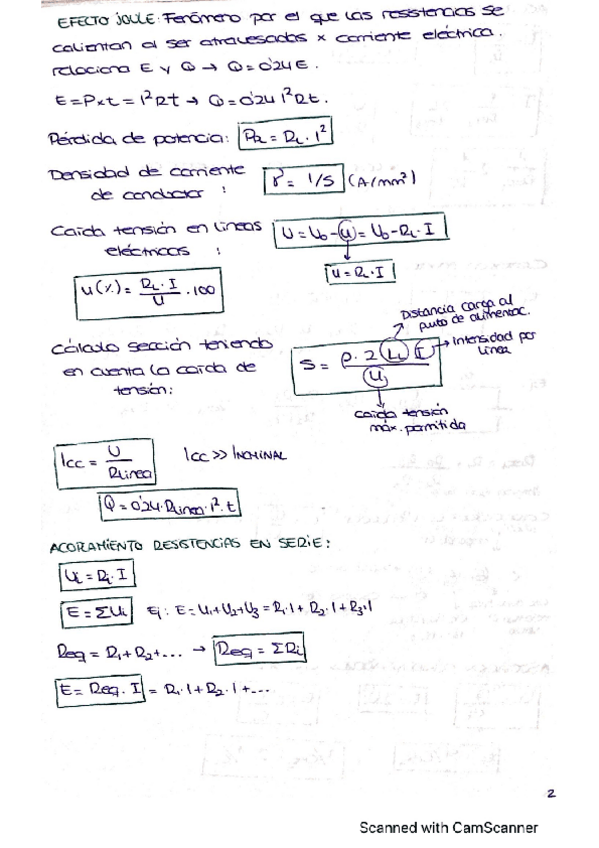 EFECTO JOULE: Fenómeno por el que las resistencias se
calientan al ser atravesadas x corriente eléctrica.
relaciona E y Q → Q = 0'24 E.
E = P×t = I²Rt → Q = 0'24 I²Rt.
Pérdida de potencia: PR = RL · I²
Densidad de corriente
de conductor : γ = I/S (A/mm²)
Caída tensión en líneas
eléctricas : U = U0 - u = U0 - RL · I
u = RL · I
u(%) = RL · I / U · 100
Distancia carga al
punto de alimentac.
Cálculo sección teniendo
en cuenta la caída de
tensión:
S = ρ · 2 L I / u
Intensidad por
línea
caída tensión
máx. permitida
Icc = U / Rlínea
Icc >> INOMINAL
Q = 0'24 · Rlínea · I² · t
ACOPLAMIENTO RESISTENCIAS EN SERIE:
Ui = Ri · I
E = ΣUi Ej: E = U1 + U2 + U3 = R1 · I + R2 · I + R3 · I
Req = R1 + R2 + ... → Req = ΣRi
E = Req · I = R1 · I + R2 · I + ...
2
Scanned with CamScanner